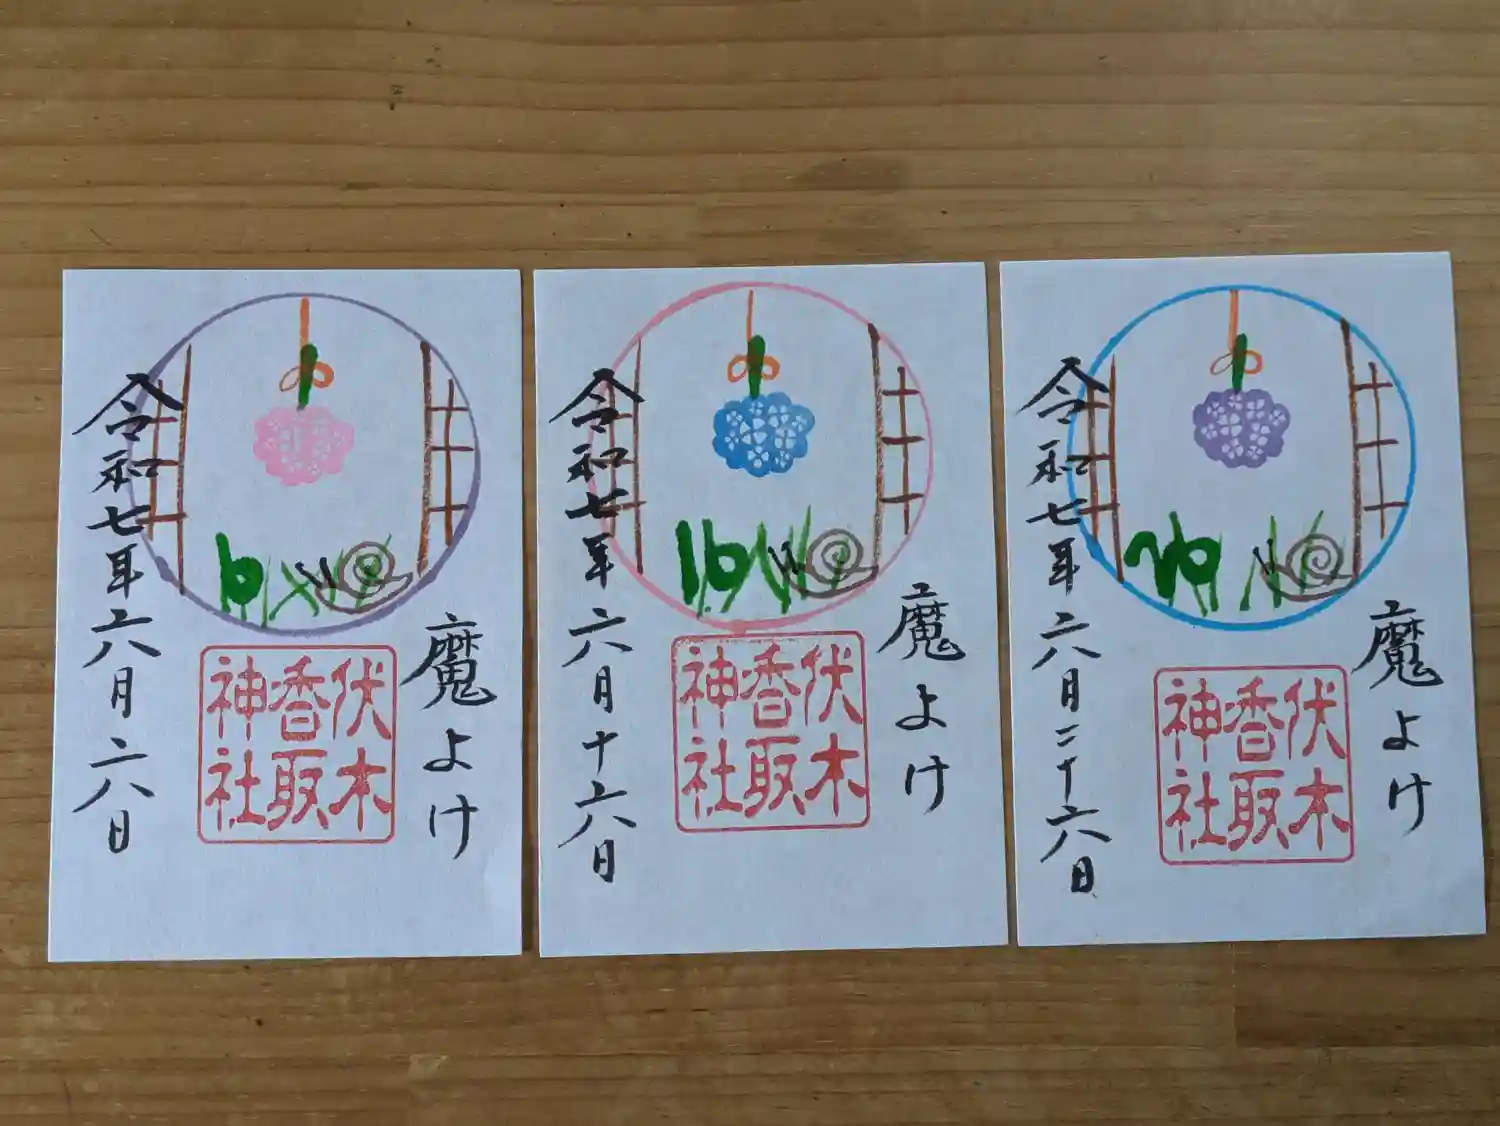 魔よけ
伏木
香取
神社
6
令和七年六月六日
魔よけ
伏木
香取
神社
16
令和七年六月十六日
魔よけ
伏木
香取
神社
26
令和七年六月二十六日